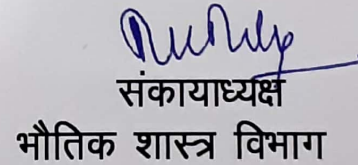 संकायाध्यक्ष
भौतिक शास्त्र विभाग